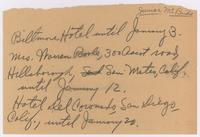 Biltmore Hotel until January 3.
Mrs. Warren 301 Road,
Hillsborough, San Mateo, Calif.
until January 12.
Hotel del Coronado, San Diego,
Calif., until January 20.